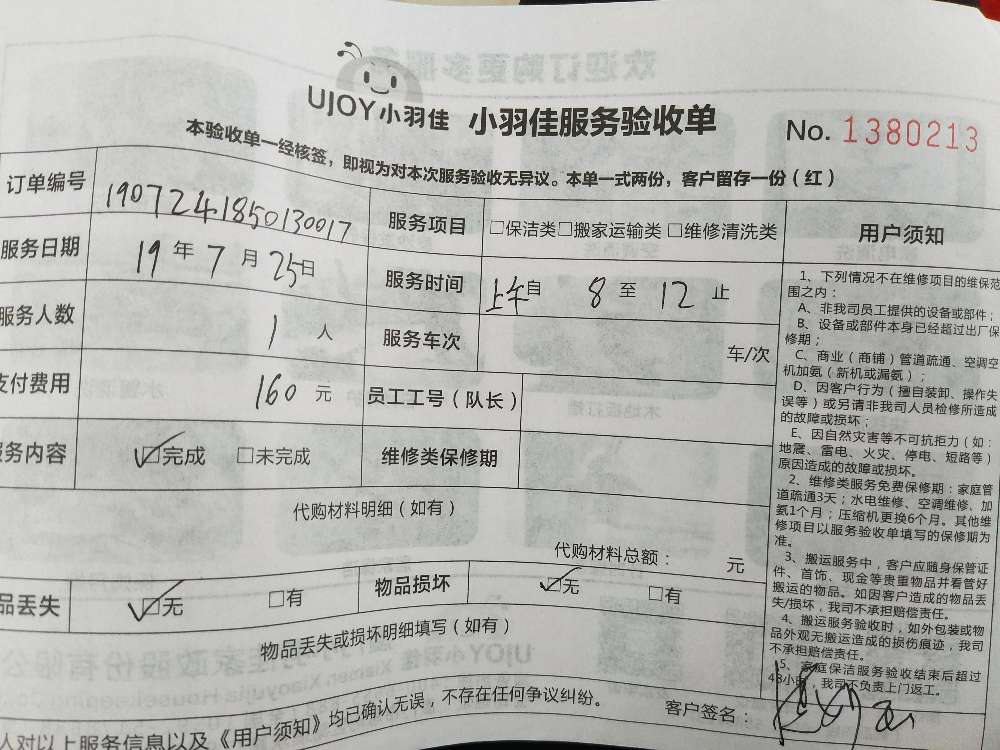 UJOY小羽佳 小羽佳服务验收单 No. 1380213
本验收单一经核签，即视为对本次服务验收无异议。本单一式两份，客户留存一份（红）
订单编号 1907241850130017 服务项目 □保洁类□搬家运输类 □维修清洗类
服务日期 19 年 7 月 25日 服务时间 上午自 8 至 12 止
服务人数 1 人 服务车次 车/次
支付费用 160 元 员工工号（队长）
务内容 ☑完成 □未完成 维修类保修期
代购材料明细（如有）
代购材料总额： 元
品丢失 ☑无 □有 物品损坏 ☑无 □有
物品丢失或损坏明细填写（如有）
人对以上服务信息以及《用户须知》均已确认无误，不存在任何争议纠纷。 客户签名：
用户须知
1、下列情况不在维修项目的维保范
围之内：
A、非我司员工提供的设备或部件；
B、设备或部件本身已经超过出厂保
修期；
C、商业（商铺）管道疏通、空调空
机加氨（新机或漏氨）；
D、因客户行为（擅自装卸、操作失
误等）或另请非我司人员检修所造成
的故障或损坏；
E、因自然灾害等不可抗拒力（如：
地震、雷电、火灾、停电、短路等）
原因造成的故障或损坏。
2、维修类服务免费保修期：家庭管
道疏通3天；水电维修、空调维修、加
氨1个月；压缩机更换6个月。其他维
修项目以服务验收单填写的保修期为
准。
3、搬运服务中，客户应随身保管证
件、首饰、现金等贵重物品并看管好
搬运的物品。如因客户造成的物品丢
失/损坏，我司不承担赔偿责任。
4、搬运服务验收时，如外包装或物
品外观无搬运造成的损伤痕迹，我司
不承担赔偿责任。
5、家庭保洁服务验收结束后超过
48小时，我司不负责上门返工。